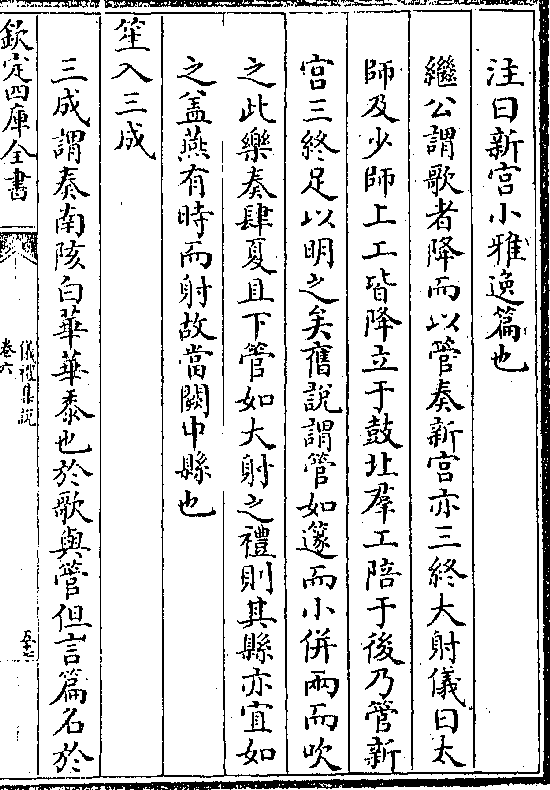 注曰新宫小雅逸篇也
繼公謂歌者降而以管奏新宫亦三終大射儀曰太
師及少師上工皆降立于鼓北羣工陪于後乃管新
宫三終足以明之矣舊說謂管如篴而小併兩而吹
之此樂奏肆夏且下管如大射之禮則其縣亦宜如
之盖燕有時而射故當闕中縣也
笙入三成
三成謂奏南陔白華華黍也於歌與管但言篇名於
欽定四庫全書
儀禮集說
卷六